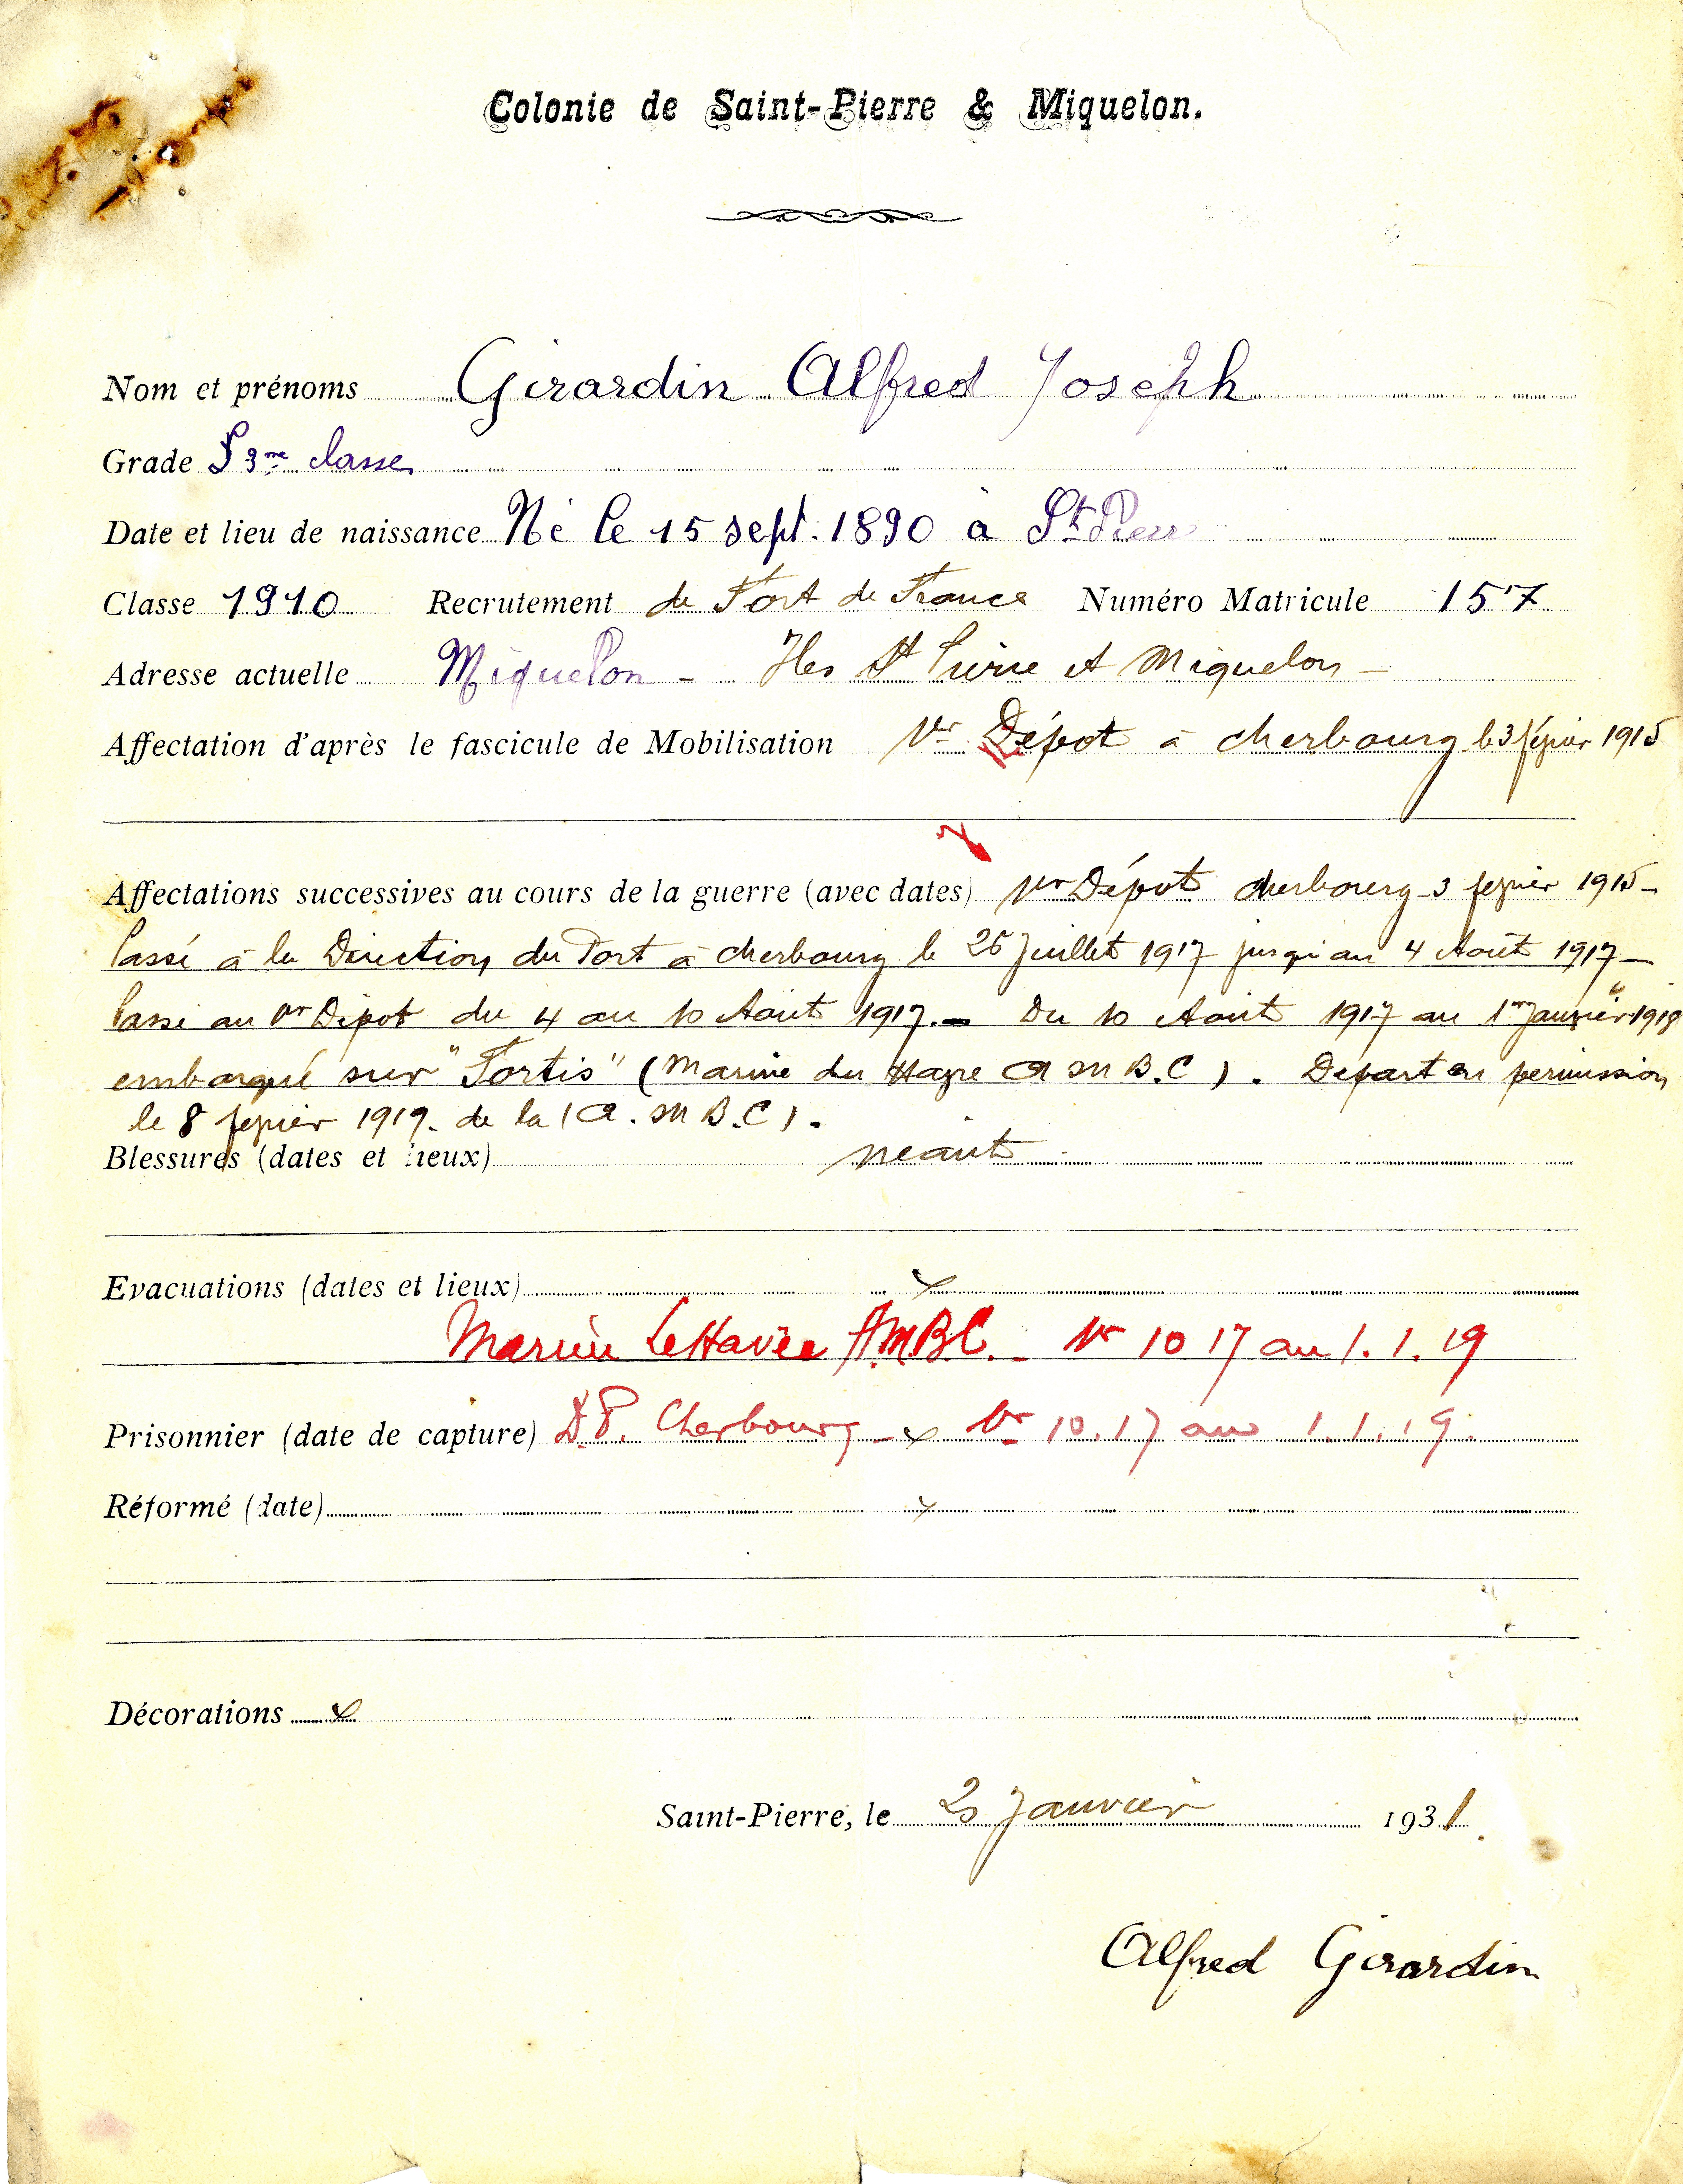 Colonie de Saint-Pierre & Miquelon.
Nom et prénoms Girardin Alfred Joseph
Grade 3me classe
Date et lieu de naissance Né le 15 sept. 1890 à St Pierre
Classe 1910 Recrutement de Fort de France Numéro Matricule 157
Adresse actuelle Miquelon - Iles St Pierre et Miquelon -
Affectation d'après le fascicule de Mobilisation 1er Dépot à cherbourg le 3 février 1915
Affectations successives au cours de la guerre (avec dates) 1er Dépot cherbourg 3 février 1915 -
Passé à la Direction du Port à cherbourg le 26 Juillet 1917 jusqu'au 4 Août 1917 -
Passé au 1er Dépot du 4 au 10 Aout 1917. - Du 10 Aout 1917 au 1er Janvier 1918
embarqué sur "Fortis" (Marine du Havre A M B.C). Depart en permission
le 8 février 1919. de la (A. M B.C).
Blessures (dates et lieux) neant
Evacuations (dates et lieux) x
Marine Le Havre A.M.B.C. - 1er 10 17 au 1. 1. 19
Prisonnier (date de capture) D.P. Cherbourg - x 1er 10. 17 au 1. 1. 19.
Réformé (date) x
Décorations x
Saint-Pierre, le Janvier 1931
Alfred Girardin